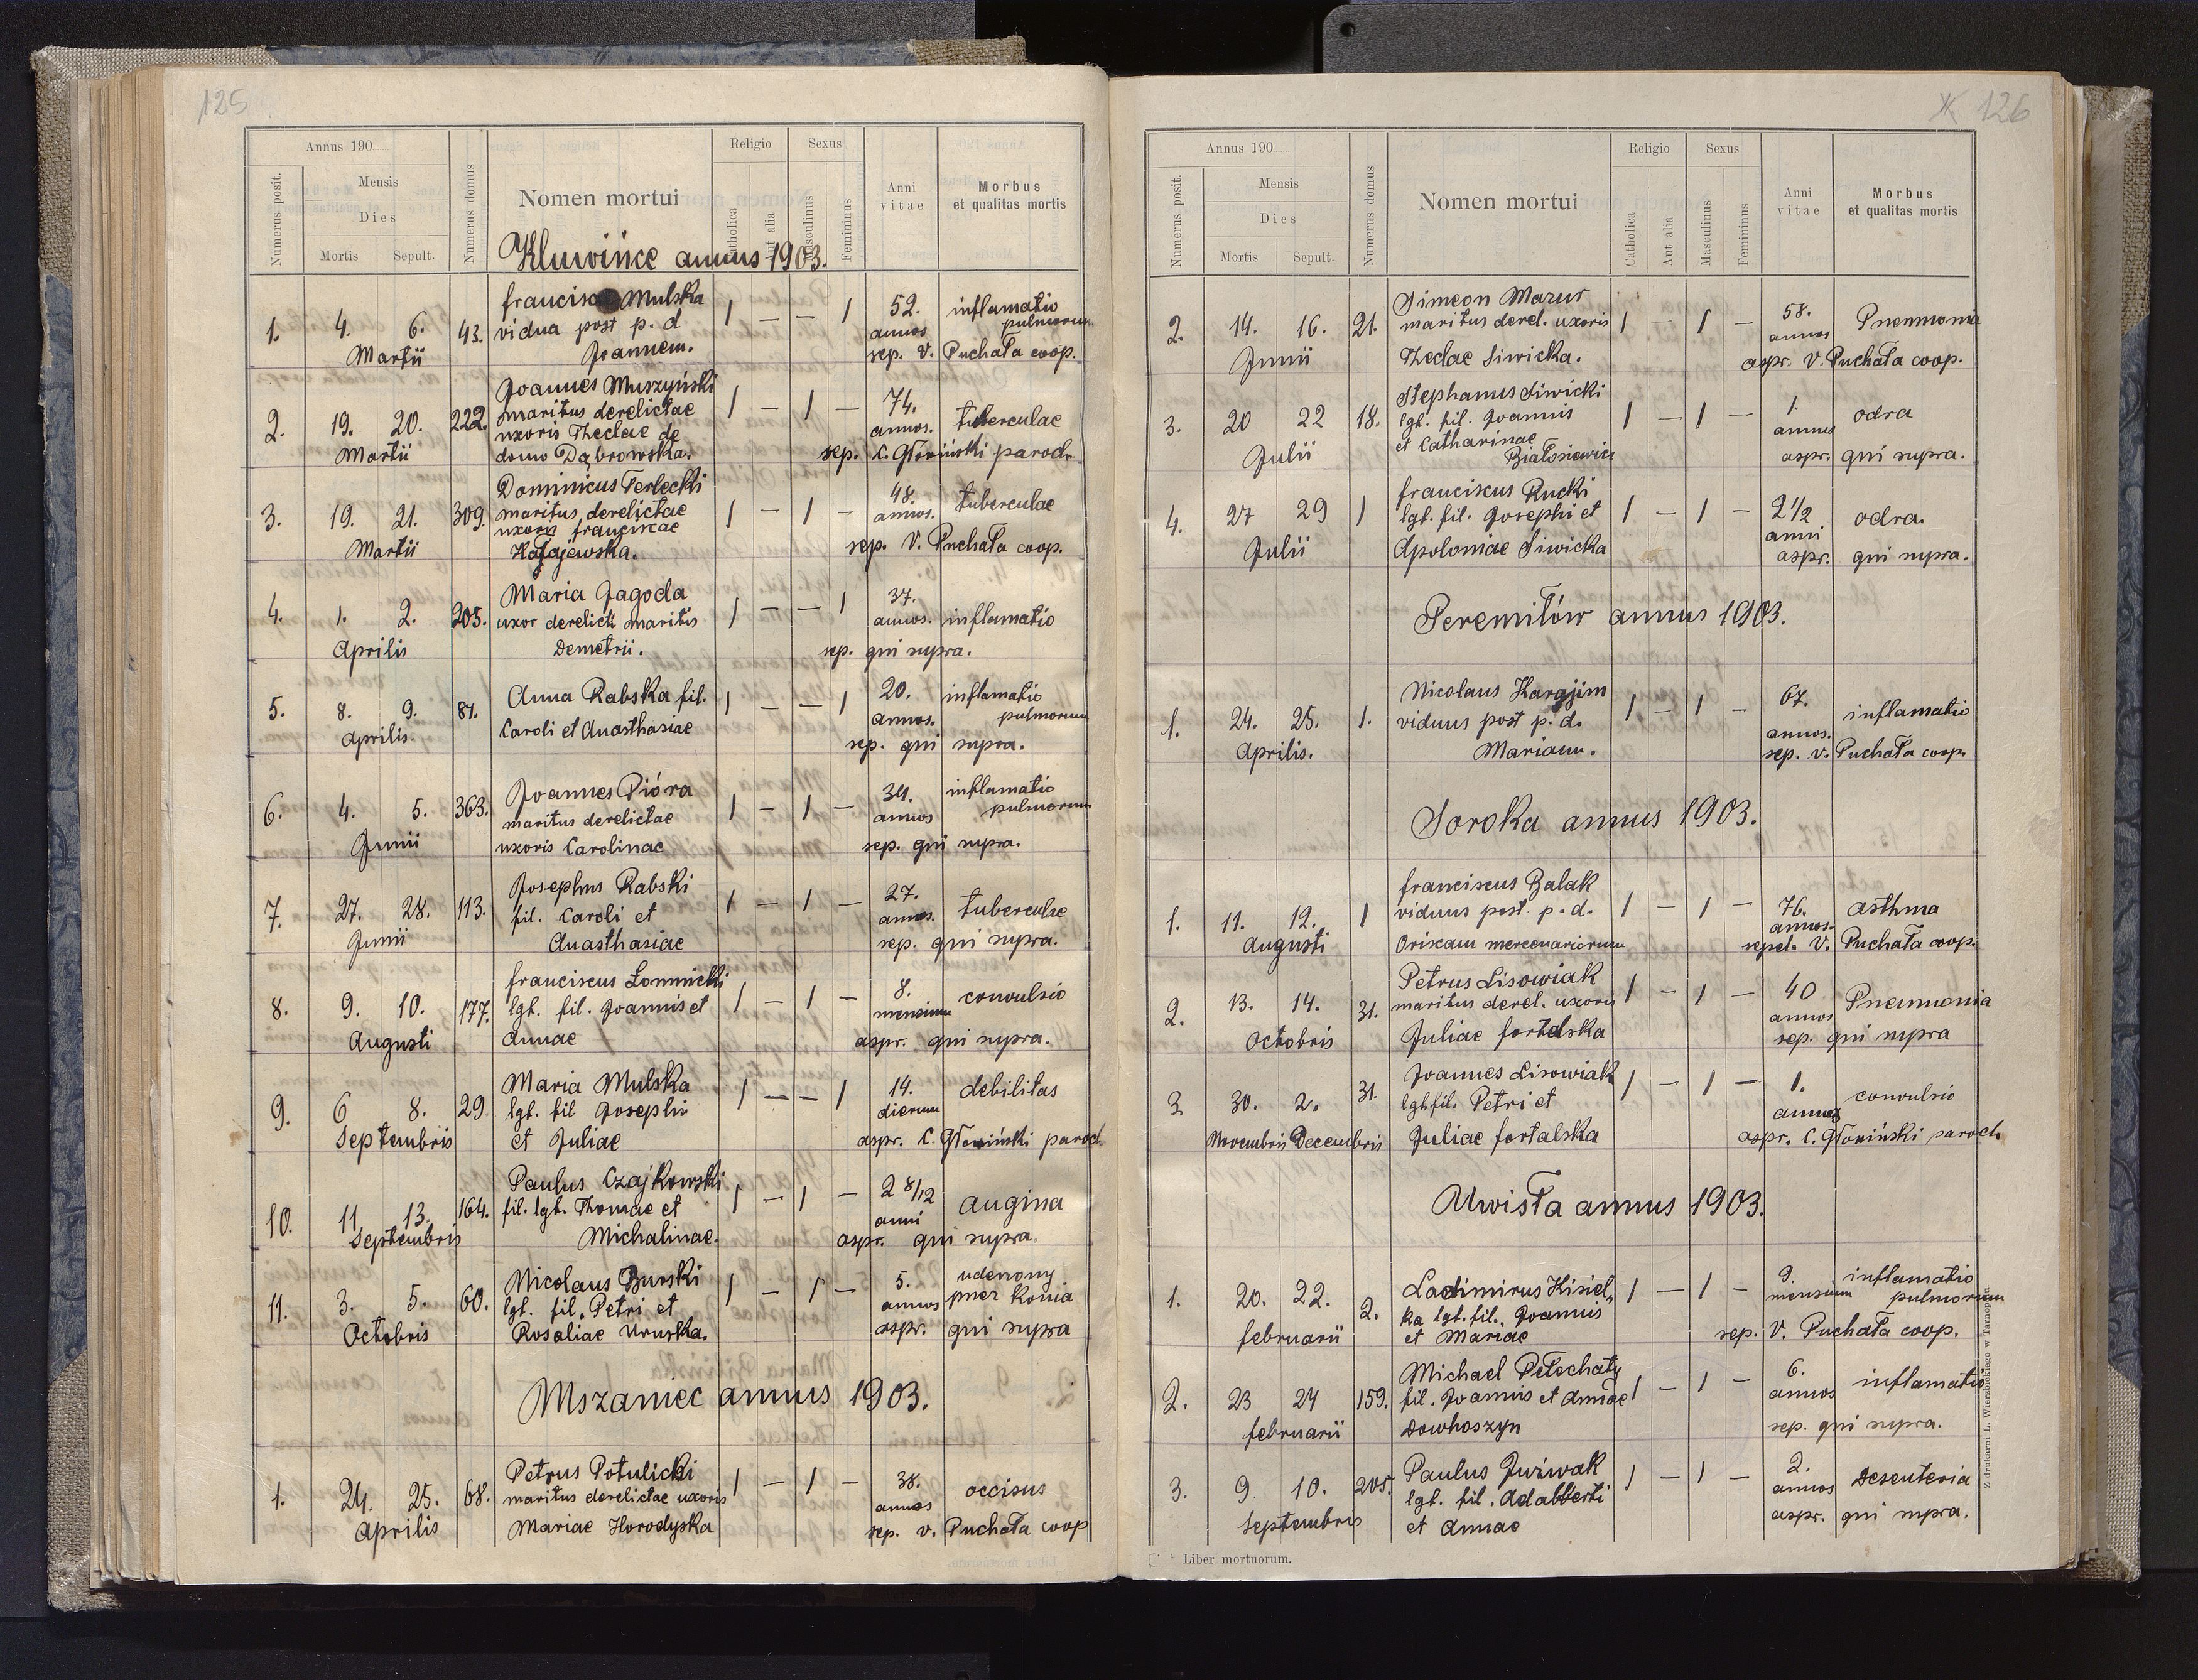 125
Annus 190
Numerus posit.
Mensis
Dies
Mortis
Sepult.
Numerus domus
Nomen mortui
Religio
Catholica
Aut alia
Sexus
Masculinus
Femininus
Anni vitae
Morbus et qualitas mortis
Kluwińce annus 1903.
1. 4. 6. 43. Mulska 1 — — 1 52. inflamatio
vidua post p. d annos pulmorum
Martii Joannem. sep. V. Puchała coop.
2. 19. 20. 222. Joannes Muszyński 1 — 1 — 74. tuberculae
maritus derelictae annos.
uxoris Theclae de
Martii domo Dąbrowska. sep. C. Głowiński paroch
3. 19. 21. 309. Dominicus Terlecki 1 — 1 — 48. tuberculae
maritus derelictae annos.
uxoris franciscae
Martii sep. V. Puchała coop.
4. 1. 2. 205. Maria Jagoda 1 — — 1 37.
uxor derelicti maritis annos. inflamatio
Aprilis Demetrii. sep. qui supra.
5. 8. 9. 81. Anna Rabska fil. 1 — — 1 20. inflamatio
Caroli et Anasthasiae annos. pulmorum
Aprilis. sep. qui supra.
6. 4. 5. 363. Joannes Pióra 1 — 1 — 34. inflamatio
maritus derelictae annos pulmorum
Junii uxoris Carolinae sep. qui supra.
7. 27. 28. 113. Josephus Rabski 1 — 1 — 27. tuberculae
fil. Caroli et annos.
Junii Anasthasiae sep. qui supra.
8. 9. 10. 177. franciscus Łomnicki 1 — 1 — 8. convulsio
lgt. fil. Joannis et mensium
Augusti Annae aspr. qui supra.
9. 6 8. 29 Maria Mulska 1 — — 1 14. debilitas
lgt. fil Josephi dierum
Septembris et Juliae aspr. C. Głowiński paroch
10. 11 13. 164. Paulus Czajkowski 1 — 1 — 2 8/12 angina
fil. lgt. Thomae et anni
Septembris Michalinae. aspr. qui supra.
11. 3. 5. 60. Nicolaus Burski 1 — 1 — 5. uderzony
lgt. fil. Petri et annos przez konia
Octobris Rosaliae Uruska. aspr. qui supra
Mszaniec annus 1903.
1. 24. 25. 68. Petrus Potulicki 1 — 1 — 38. occisus
maritus derelictae uxoris annos
Aprilis Mariae Horodyska sep. V. Puchała coop
126
Annus 190
Numerus posit.
Mensis
Dies
Mortis
Sepult.
Numerus domus
Nomen mortui
Religio
Catholica
Aut alia
Sexus
Masculinus
Femininus
Anni vitae
Morbus et qualitas mortis
2. 14. 16. 21. Simeon Mazur 1 — 1 — 58. Pneumonia
maritus derel. uxoris annos
Junii Theclae Siwicka. aspr. V. Puchała coop.
3. 20 22 18. Stephanus Siwicki 1 — 1 — 1. odra
lgt. fil. Joannis annus
et Catharinae
Julii Białosiewicz aspr. qui supra.
4. 27 29 1 franciscus Rucki 1 — 1 — 2 1/2 odra.
lgt. fil. Josephi et anni
Julii Apoloniae Siwicka aspr. qui supra.
Peremiłów annus 1903.
1. 24. 25. 1. Nicolaus 1 — 1 — 67. inflamatio
viduus post p. d. annos.
Aprilis. Mariann. sep. V. Puchała coop.
Soroka annus 1903.
1. 11. 12. 1 franciscus Balak 1 — 1 — 76. asthma
viduus post p. d. annos.
Augusti mercenariorum sepel. V. Puchała coop.
2. 13. 14. 31. Petrus Lisowiak 1 — 1 — 40 Pneumonia
maritus derel. uxoris annos
Octobris Juliae fortalska sep. qui supra
3. 30. 2. 31. Joannes Lisowiak 1 — 1 — 1. convulsio
lgt. fil. Petri et annus
Novembris Decembris Juliae fortalska aspr. C. Głowiński paroch
Uwisła annus 1903.
1. 20. 22. 2. Ladimirus Kisiel- 1 — 1 — 9. inflamatio
ka lgt. fil. Joannis mensium pulmorum
februarii et Mariae sep. V. Puchała coop.
2. 23 24 159. Michael Pełechaty 1 — 1 — 6. inflamatio
fil. Joannis et Annae annos
februarii Dowhoszyn sep. qui supra.
3. 9 10. 205. Paulus Juźwak 1 — 1 — 2. Desenteria
lgt. fil. Adalberti annos
Septembris et Annae aspr. qui supra.
Liber mortuorum.
Z drukarni L. Wierzbickiego w Tarnopolu.